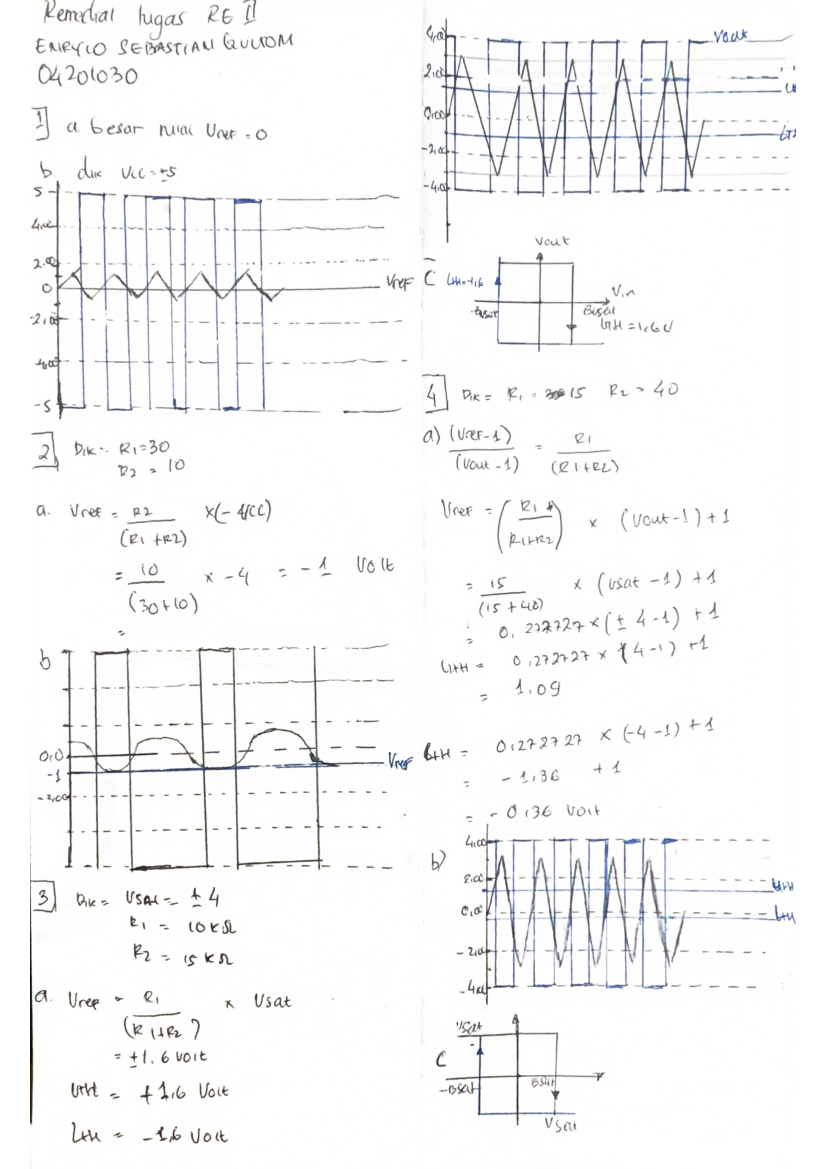 Remedial tugas RE II
ENRYCO SEBASTIAN GULTOM
04201030
1] a besar nilai Vref = 0
b dik Vcc = ±5
5
4,00
2.00
0
-2,00
-4,00
-5
Vref
2] Dik: R1=30
R2 = 10
a. Vref = R2 / (R1+R2) × (-4Vcc)
= 10 / (30+10) × -4 = -1 Volt
=
b
0,0
-1
-2,00
Vref
3] Dik = VSAt = ± 4
R1 = 10 KΩ
R2 = 15 KΩ
a. Vref = R1 / (R1+R2) × Vsat
= ±1.6 Volt
UtH = +1,6 Volt
LtH = -1,6 Volt
4,00
2,00
0,00
-2,00
-4,00
Vout
LTH
C
Vout
LtH=-1,6
Vin
-Bsat
UtH = 1,6 V
4] Dik = R1 = 15 R2 = 40
a) (Vref-1) / (Vout-1) = R1 / (R1+R2)
Vref = (R1 / R1+R2) × (Vout-1) + 1
= 15 / (15+40) × (Vsat -1) +1
= 0,272727 × (± 4-1) + 1
UtH = 0,272727 × (4-1) +1
= 1.09
LtH = 0,272727 × (-4-1) +1
= -1,36 +1
= -0,36 Volt
b)
4,00
2,00
0,00
-2,00
-4,00
UtH
LtH
C
Vsat
-Bsat
Bsat
Vsat